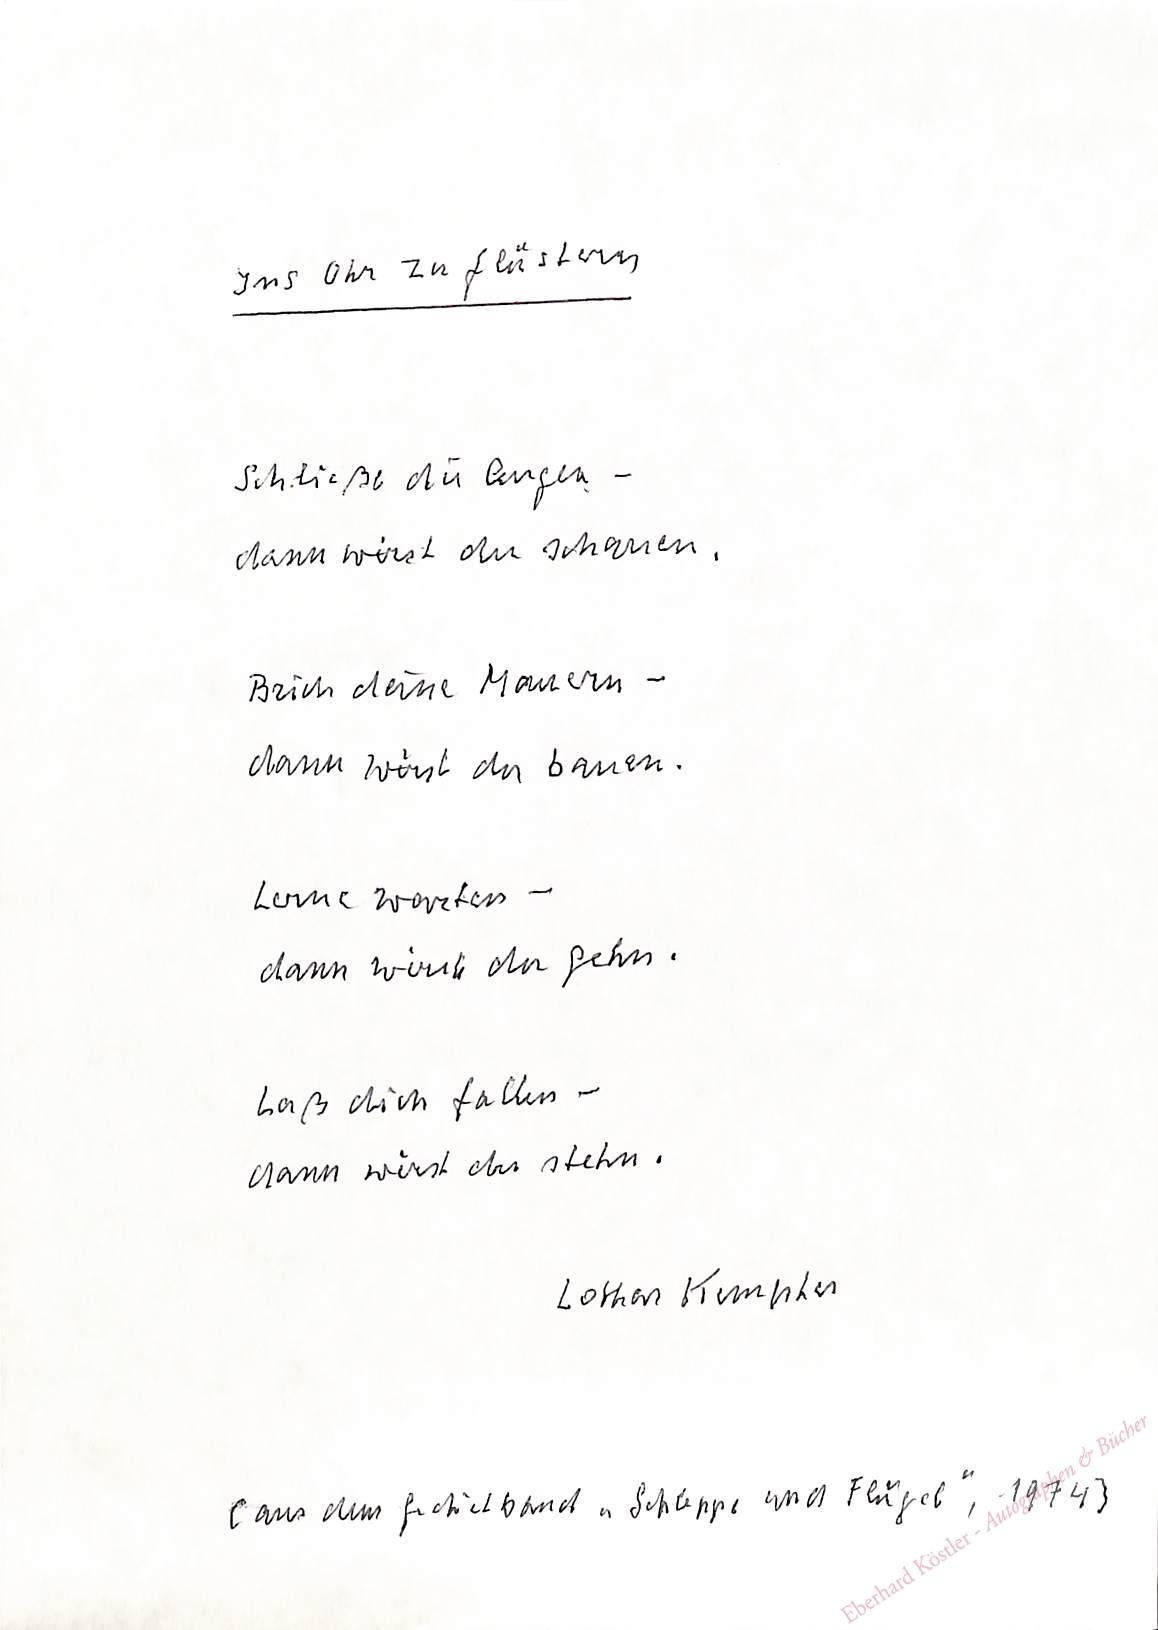 Ins Ohr zu flüstern
Schließe die Augen –
dann wirst du schauen.
Brich deine Mauern –
dann wirst du bauen.
Lerne warten –
dann wirst du gehn.
Laß dich fallen –
dann wirst du stehn.
Lothar Kempter
(aus dem Gedichtband „Schleppe und Flügel“, 1974)
Eberhard Köstler - Autographen & Bücher